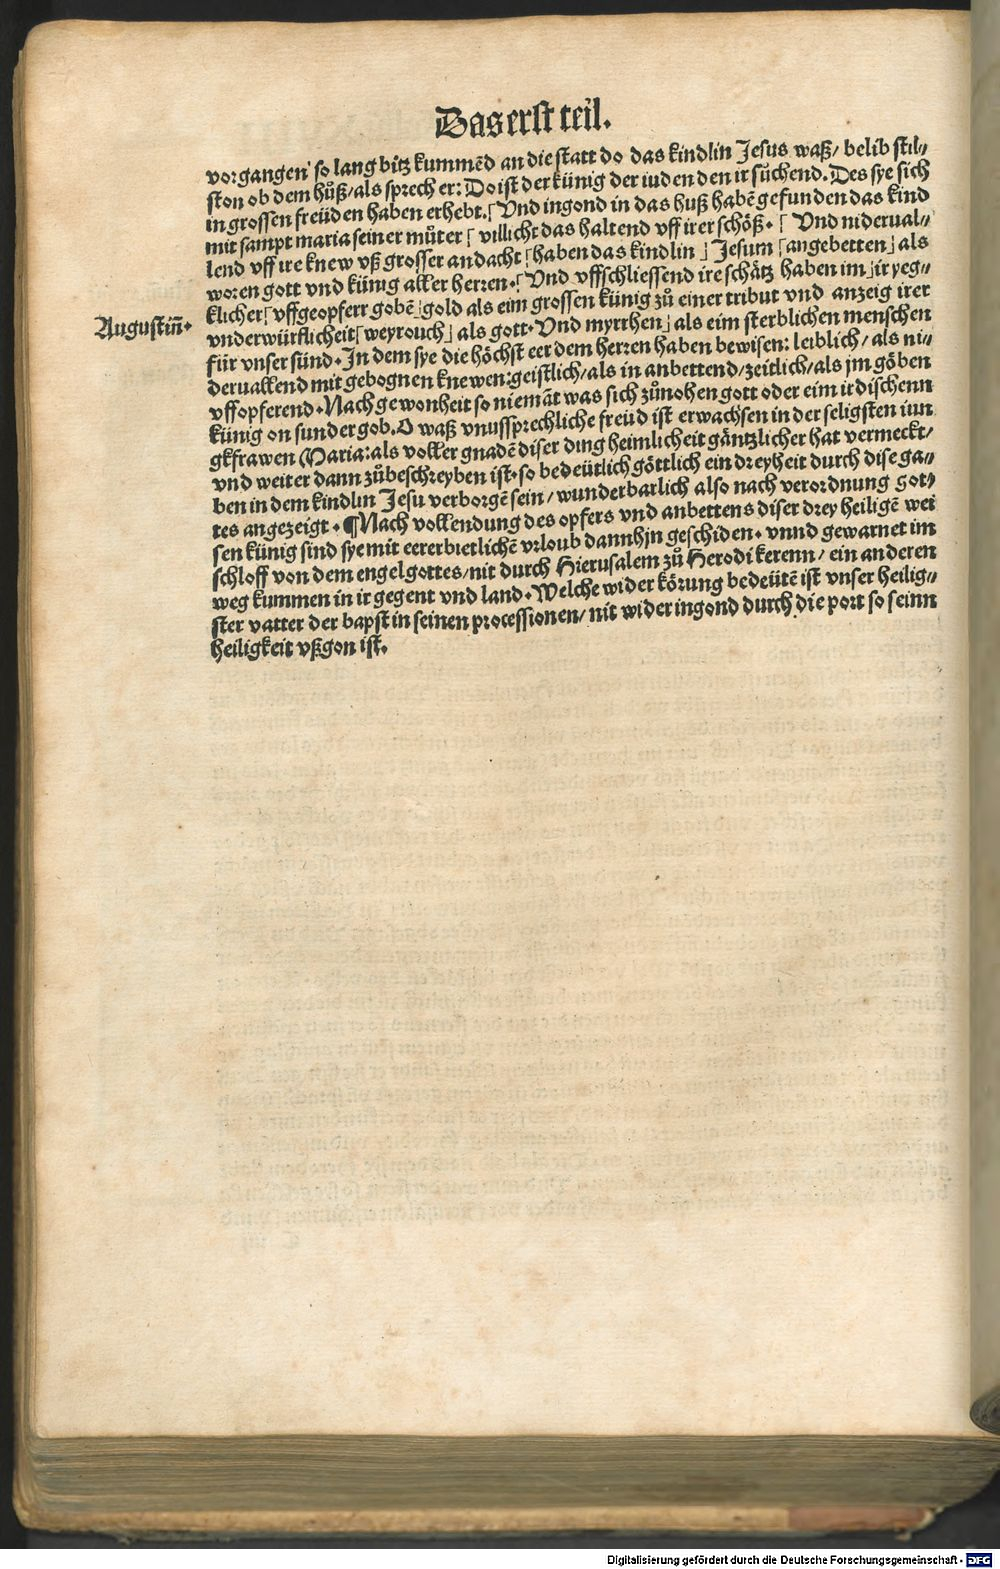 Das erst teil.
vorgangen so lang bitz kummēd an die statt do das kindlin Jesus waß / belib stil⸗
ston ob dem hůß / als sprech er: Do ist der künig der iuden den ir sůchend. Des sye sich
in grossen freüden haben erhebt. ⌈ Vnd ingond in das huß habē gefunden das kind
mit sampt maria seiner můter ⌈ villicht das haltend vff irer schöß. ⌈ Vnd niderual⸗
lend vff ire knew vß grosser andacht ⌈ haben das kindlin ⌋ Jesum ⌈ angebetten ⌋ als
woren gott vnd künig aller herren. ⌈ Vnd vffschliessend ire schätz haben im ⌋ ir yeg⸗
klicher ⌈ vffgeopferr gobē ⌋ gold als eim grossen künig zů einer tribut vnd anzeig irer
Augustiñ.
vnderwürflicheit ⌈ weyrouch ⌋ als gott. Vnd myrrhen ⌋ als eim sterblichen menschen
für vnser sünd. In dem sye die höchst eer dem herren haben bewisen: leiblich / als ni⸗
deruallend mit gebognen knewen: geistlich / als in anbettend / zeitlich / als jm göben
vffopferend. Nach gewonheit so niemāt was sich zůnohen gott oder eim irdischenn
künig on sunder gob. O waß vnussprechliche freüd ist erwachsen in der seligsten iun
gkfrawen Maria: als voller gnadē diser ding heimlicheit gäntzlicher hat vermeckt /
vnd weiter dann zůbeschreyben ist. so bedeütlich göttlich ein dreyheit durch dise ga⸗
ben in dem kindlin Jesu verborgē sein / wunderbarlich also nach verordnung got⸗
tes angezeigt. ¶ Nach vollendung des opfers vnd anbettens diser drey heiligē wei
sen künig sind sye mit eererbietlichē vrloub dannhjn geschiden. vnnd gewarnet im
schloff von dem engel gottes / nit durch Hierusalem zů Herodi kerenn / ein anderen
weg kummen in ir gegent vnd land. Welche wider körung bedeütē ist vnser heilig⸗
ster vatter der bapst in seinen processionen / nit wider ingond durch die port so seinn
heiligkeit vßgon ist.
Digitalisierung gefördert durch die Deutsche Forschungsgemeinschaft - DFG